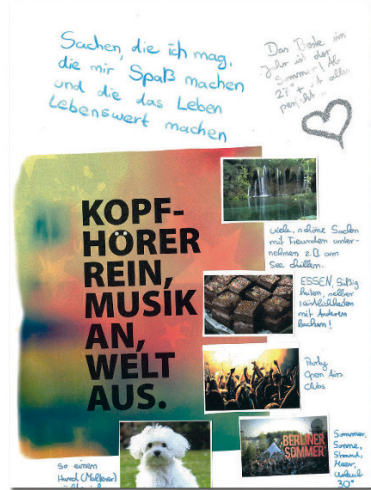 Sachen, die ich mag,
die mir Spaß machen
und die das Leben
Lebenswert machen
Das Beste im
Jahr ist der
Sommer! Ab
27° + ist alles
perfekt
KOPF-
HÖRER
REIN,
MUSIK
AN,
WELT
AUS.
viele, schöne Sachen
mit Freunden unter-
nehmen z.B. am
See chillen.
ESSEN, Süßig
keiten, selber
mit Anderen
kochen!
Party
Open Airs
Clubs
BERLINER
SOMMER
Sommer,
Sonne,
Strand,
Meer,
Urlaub
30°
so einen
Hund (Malteser)